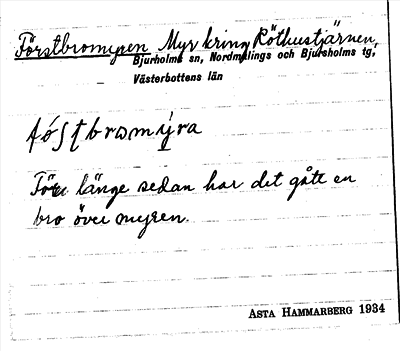 Förstbromyren Myr kring Röthustjärnen,
Bjurholms sn, Nordmalings och Bjurholms tg,
Västerbottens län
fǿʃtbromýra
För länge sedan har det gått en
bro över myren.
ASTA HAMMARBERG 1934